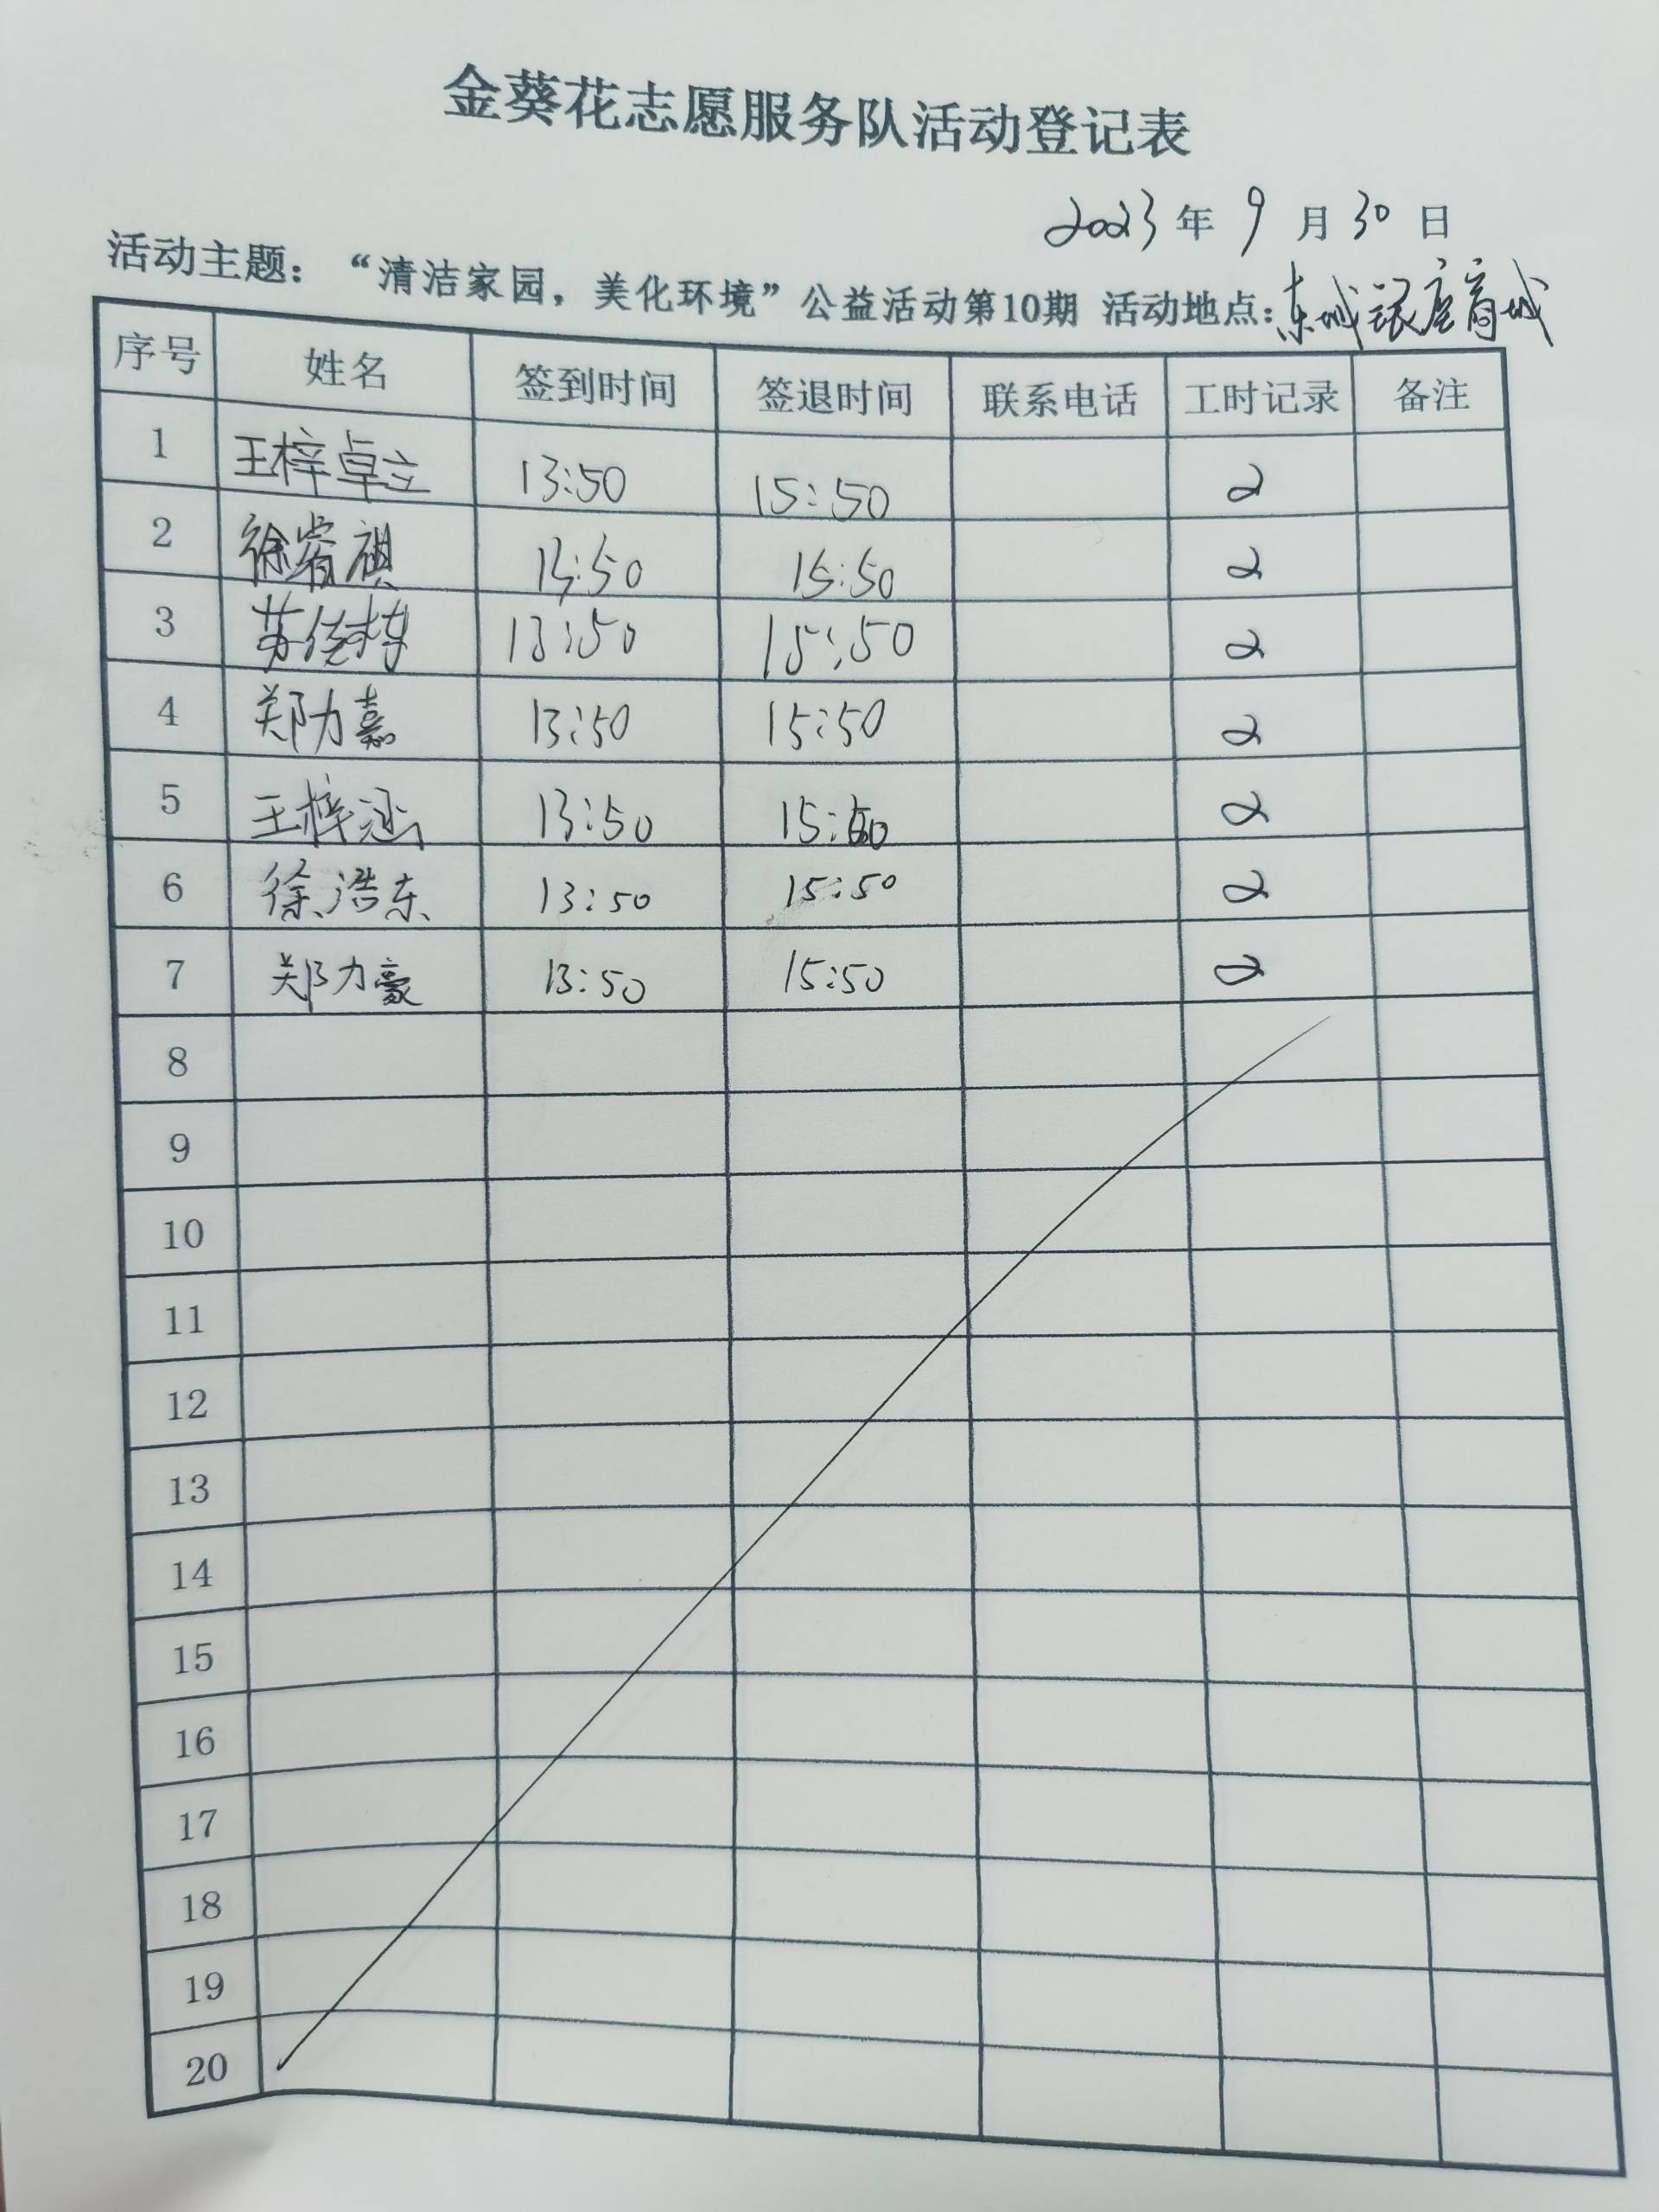 金葵花志愿服务队活动登记表
2023年9月30日
活动主题：“清洁家园，美化环境”公益活动第10期 活动地点：东城银座商城
序号 姓名 签到时间 签退时间 联系电话 工时记录 备注
1 王梓卓立 13:50 15:50 2
2 徐睿祺 13:50 15:50 2
3 苏佳栋 13:50 15:50 2
4 郑力嘉 13:50 15:50 2
5 王梓涵 13:50 15:50 2
6 徐浩东 13:50 15:50 2
7 郑力豪 13:50 15:50 2
8
9
10
11
12
13
14
15
16
17
18
19
20